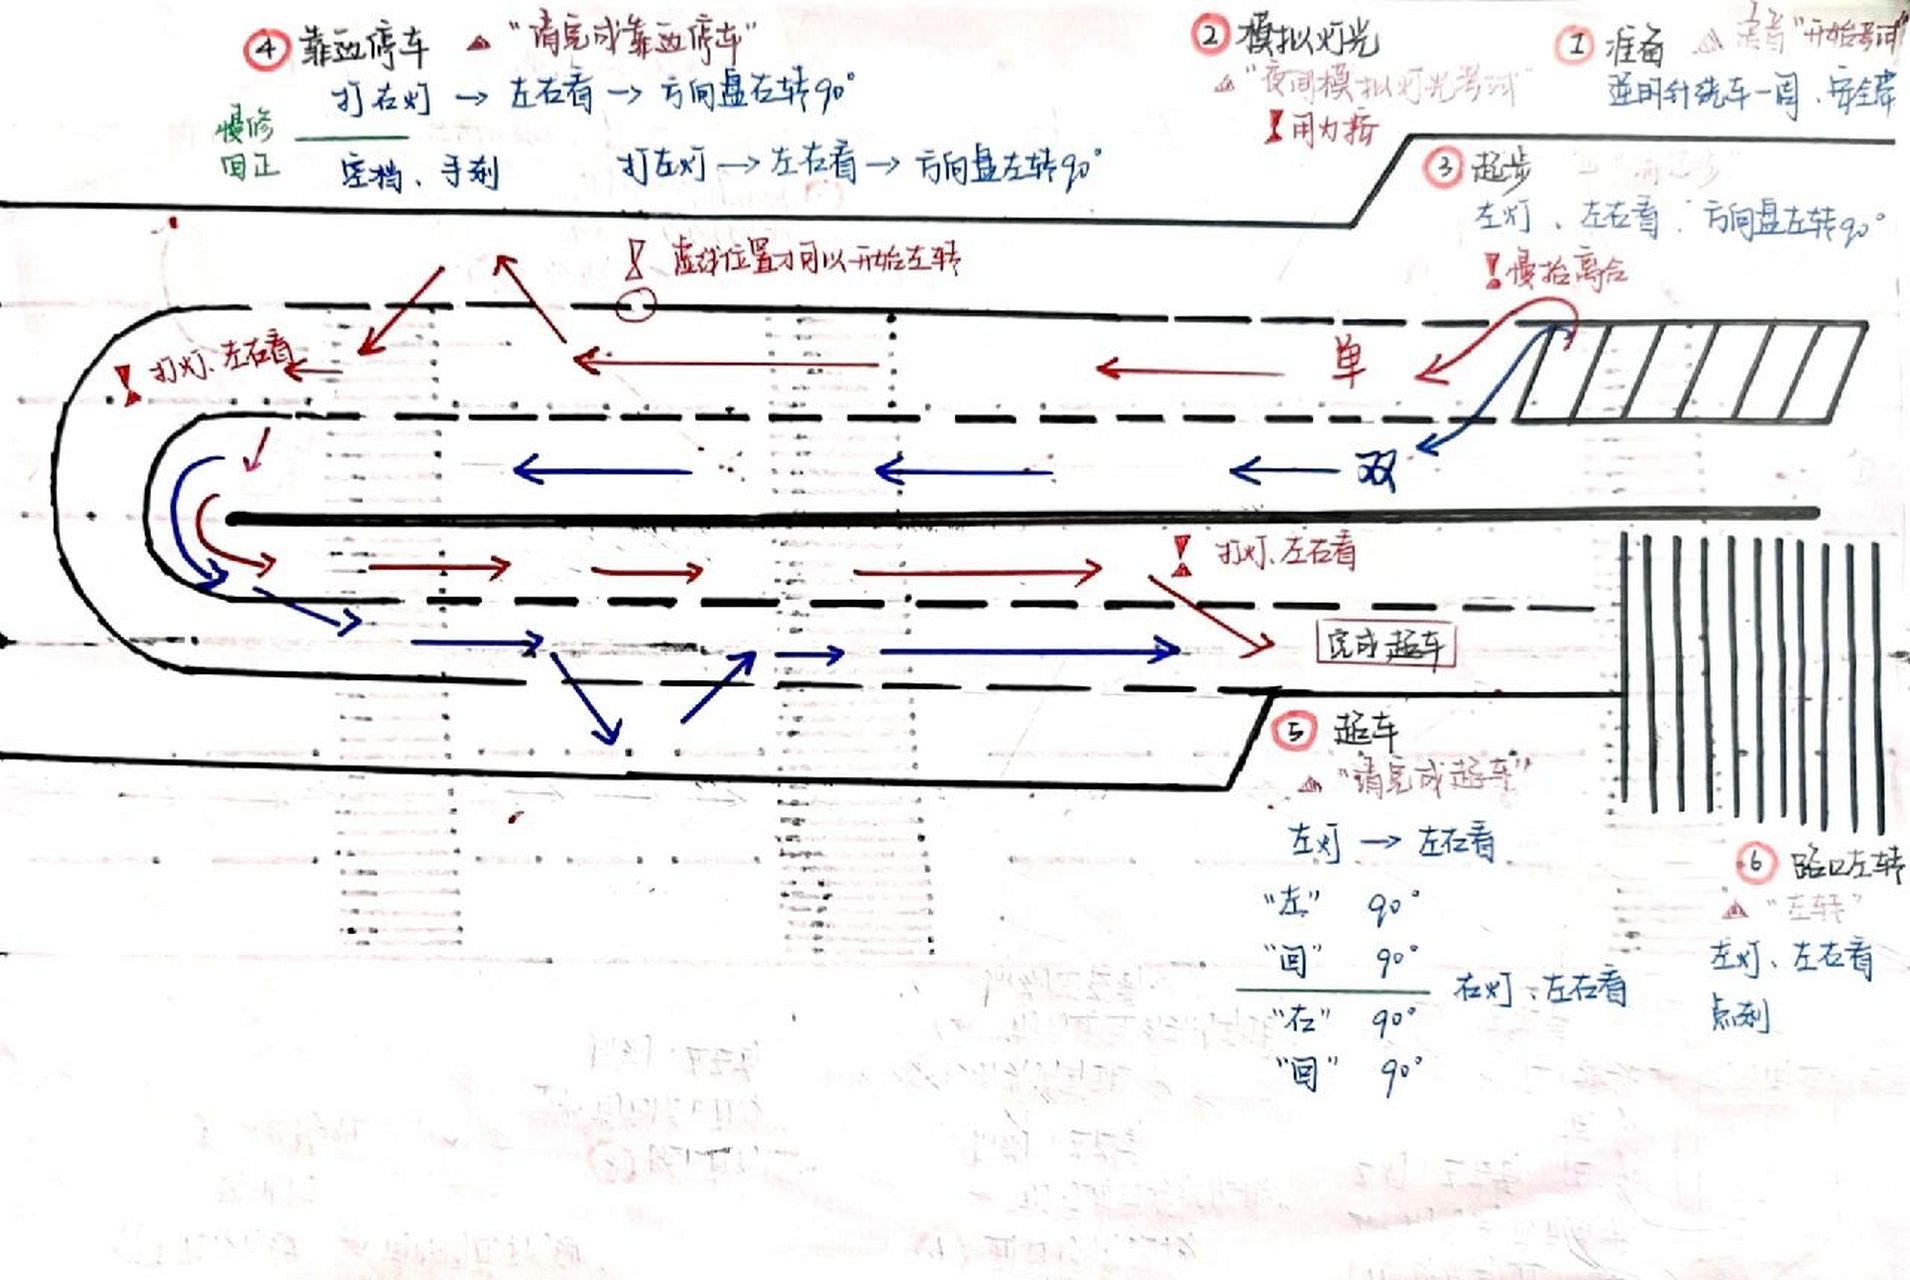 ④ 靠边停车 "请完成靠边停车"
打右灯 → 左右看 → 方向盘右转90°
慢修
回正
空档、手刹 打左灯 → 左右看 → 方向盘左转90°
② 模拟灯光
"夜间模拟灯光考试"
用力按
① 准备 "开始考试"
逆时针绕车一周、安全带
③ 起步
左灯、左右看、方向盘左转90°
慢抬离合
虚线位置才可以开始左转
打灯、左右看
单
双
打灯、左右看
完成超车
⑤ 超车
"请完成超车"
左灯 → 左右看
"左" 90°
"回" 90°
右灯、左右看
"右" 90°
"回" 90°
⑥ 路口左转
"左转"
左灯、左右看
点刹